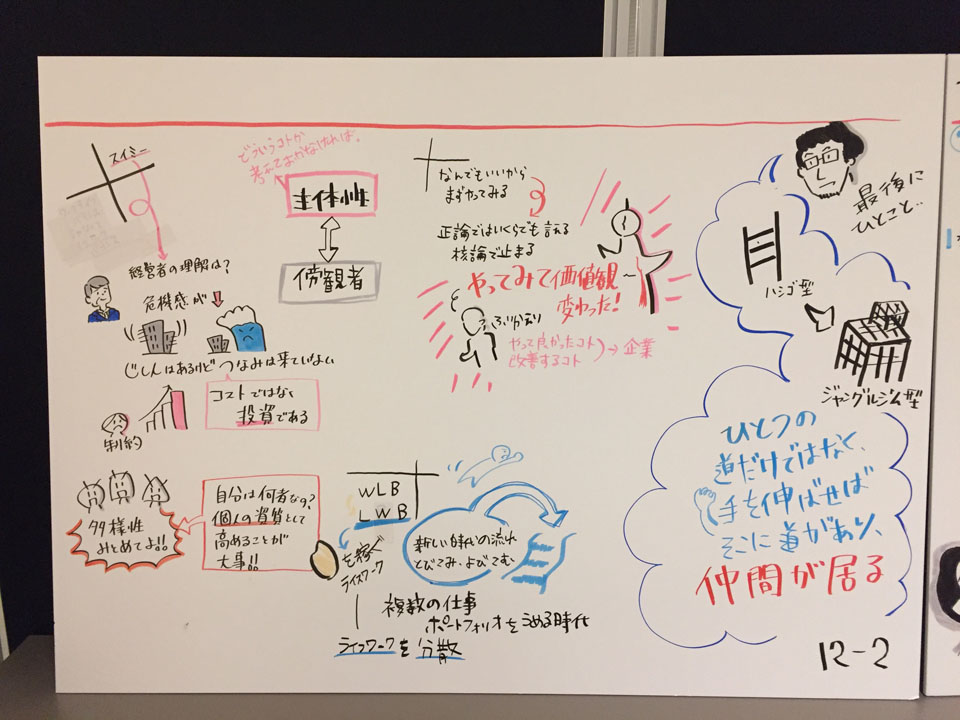 スイミー
どういうコトが
考えておかなければ、
主体性
傍観者
経営者の理解は?
危機感が
じしんはあるけどつなみは来ていない
コストではなく
投資である
制約
多様性
みとめてよ!!
自分は何者なの?
個人の資質として
高めることが
大事!!
なんでもいいから
まずやってみる
正論ではいくらでも言える
核論で止まる
やってみて価値観
変わった!
ふりかえり
やって良かったコト
改善するコト
→企業
WLB
LWB
を稼ぐ
ライスワーク
新しい味いの流れ
とびてみ・よびてむ
複数の仕事
ポートフォリオをうめる時代
ライフワークを分散
最後に
ひとこと..
ハシゴ型
ジャングルジム型
ひとつの
道だけではなく、
手を伸ばせば
そこに道があり、
仲間が居る
12-2